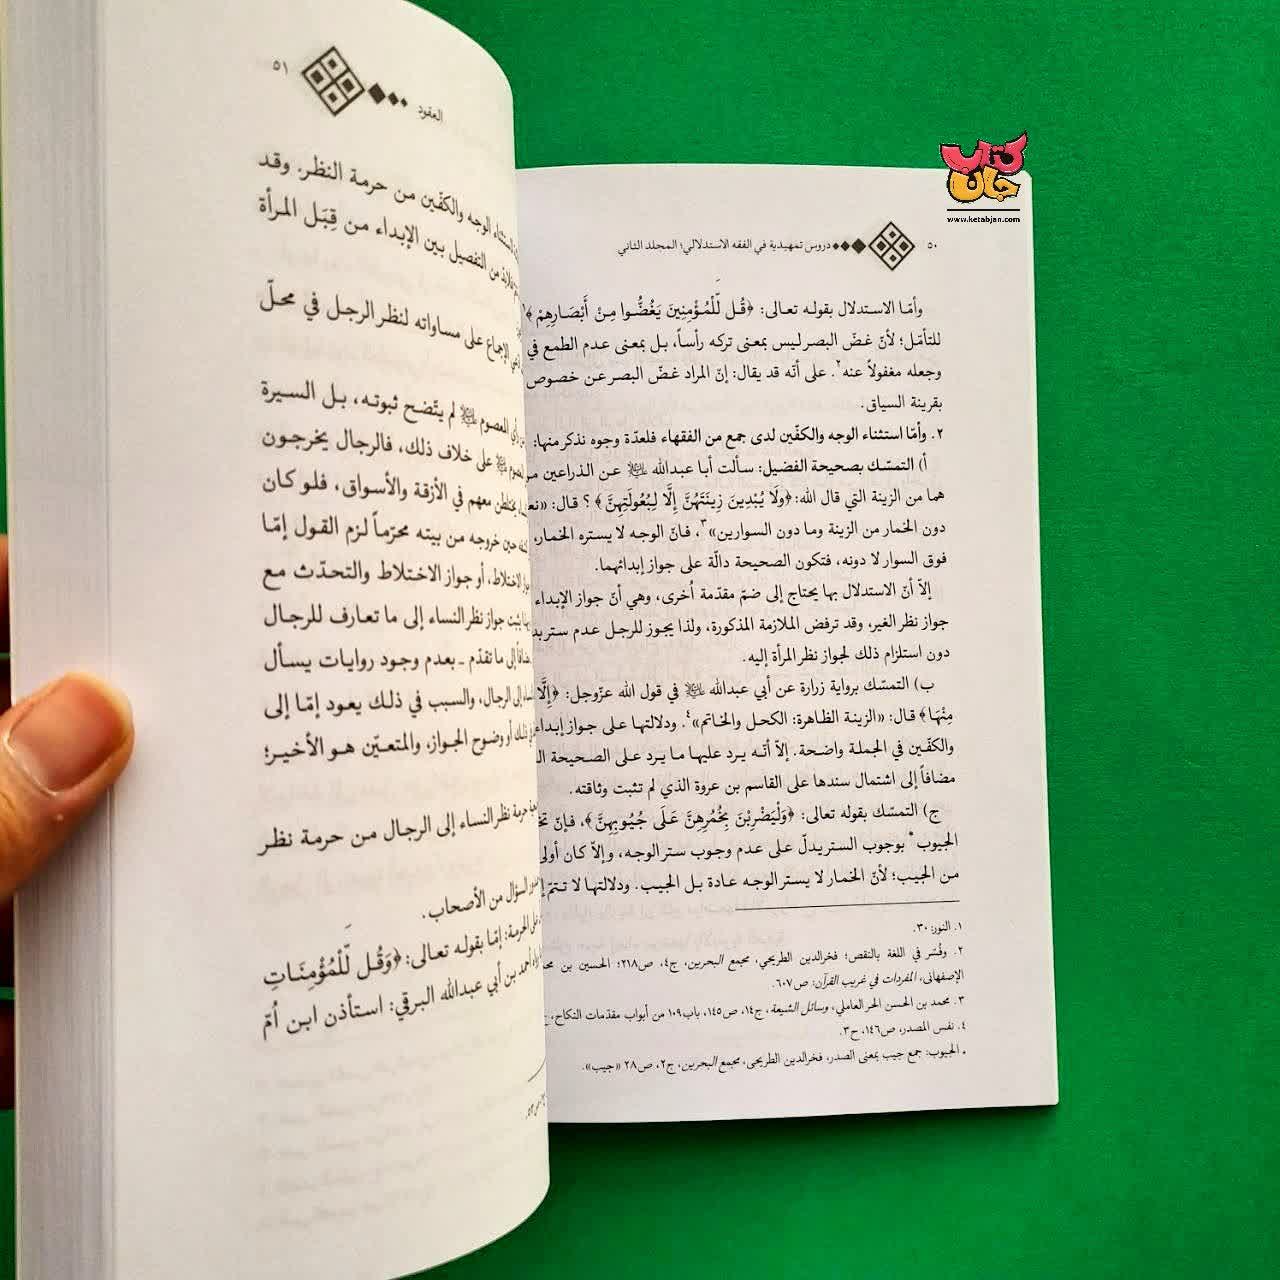 كتاب جان
www.ketabjan.com
٥٠ دروس تمهيدية في الفقه الاستدلالي؛ المجلد الثاني
وأمّا الاستدلال بقوله تعالى: ﴿قُل لِّلْمُؤْمِنِينَ يَغُضُّوا مِنْ أَبْصَارِهِمْ﴾١
للتأمّل؛ لأنّ غضّ البصر ليس بمعنى تركه رأساً، بل بمعنى عدم الطمع في
وجعله مغفولاً عنه٢. على أنّه قد يقال: إنّ المراد غضّ البصر عن خصوص
بقرينة السياق.
٢. وأمّا استثناء الوجه والكفّين لدى جمع من الفقهاء فلعدّة وجوه نذكر منها:
أ) التمسّك بصحيحة الفضيل: سألت أبا عبدالله ﷺ عن الذراعين من
هما من الزينة التي قال الله: ﴿ولَا يُبْدِينَ زِينَتَهُنَّ إِلَّا لِبُعُولَتِهِنَّ﴾؟ قال: «نعم
دون الخمار من الزينة وما دون السوارين»٣، فانّ الوجه لا يستره الخمار،
فوق السوار لا دونه، فتكون الصحيحة دالّة على جواز إبدائهما.
إلاّ أنّ الاستدلال بها يحتاج إلى ضمّ مقدّمة اُخرى، وهي أنّ جواز الإبداء
جواز نظر الغير، وقد ترفض الملازمة المذكورة، ولذا يجوز للرجل عدم ستر
دون استلزام ذلك لجواز نظر المرأة إليه.
ب) التمسّك برواية زرارة عن أبي عبدالله في قول الله عزّوجل: ﴿إِلَّا
مِنْهَا﴾ قال: «الزينة الظاهرة: الكحل والخاتم»٤. ودلالتها على جواز إبداء
والكفّين في الجملة واضحة. إلاّ أنّه يرد عليها ما يرد على الصحيحة
مضافاً إلى اشتمال سندها على القاسم بن عروة الذي لم تثبت وثاقته.
ج) التمسّك بقوله تعالى: ﴿وَلْيَضْرِبْنَ بِخُمُرِهِنَّ عَلَى جُيُوبِهِنَّ﴾، فإنّ
الجيوب* بوجوب الستر يدلّ على عدم وجوب ستر الوجه، وإلاّ كان أولى
من الجيب؛ لأنّ الخمار لا يستر الوجه عادة بل الجيب. ودلالتها لا تتمّ
١. النور: ٣٠.
٢. وفُسّر في اللغة بالنقص؛ فخرالدين الطريحي، مجمع البحرين، ج٤، ص٢١٨؛ الحسين بن
الإصفهانی، المفردات في غريب القرآن: ص٦٠٧.
٣. محمد بن الحسن الحر العاملي، وسائل الشيعة، ج١٤، ص١٤٥، باب١٠٩ من أبواب مقدّمات النكاح،
٤. نفس المصدر، ص١٤٦، ح٣.
* الجيوب: جمع جيب بمعنى الصدر، فخرالدين الطريحى، مجمع البحرين، ج٢، ص٢٨ «جيب».
العقود ٥١
استثناء الوجه والكفّين من حرمة النظر. وقد
من التفصيل بين الإبداء من قِبَل المرأة
الإجماع على مساواته لنظر الرجل في محلّ
رأي المعصوم لم يتّضح ثبوته، بل السيرة
على خلاف ذلك، فالرجال يخرجون
يختلطن معهم في الأزقة والأسواق، فلو كان
حين خروجه من بيته محرّماً لزم القول إمّا
الاختلاط، أو جواز الاختلاط والتحدّث مع
يثبت جواز نظر النساء إلى ما تعارف للرجال
إلى ما تقدّم ـ بعدم وجود روايات يسأل
إلى الرجال، والسبب في ذلك يعود إمّا إلى
ذلك أو وضوح الجواز، والمتعيّن هو الأخير؛
حرمة نظر النساء إلى الرجال من حرمة نظر
السؤال من الأصحاب.
على الحرمة: إمّا بقوله تعالى: ﴿وَقُل لِّلْمُؤْمِنَاتِ
أحمد بن أبي عبدالله البرقي: استأذن ابن اُمّ